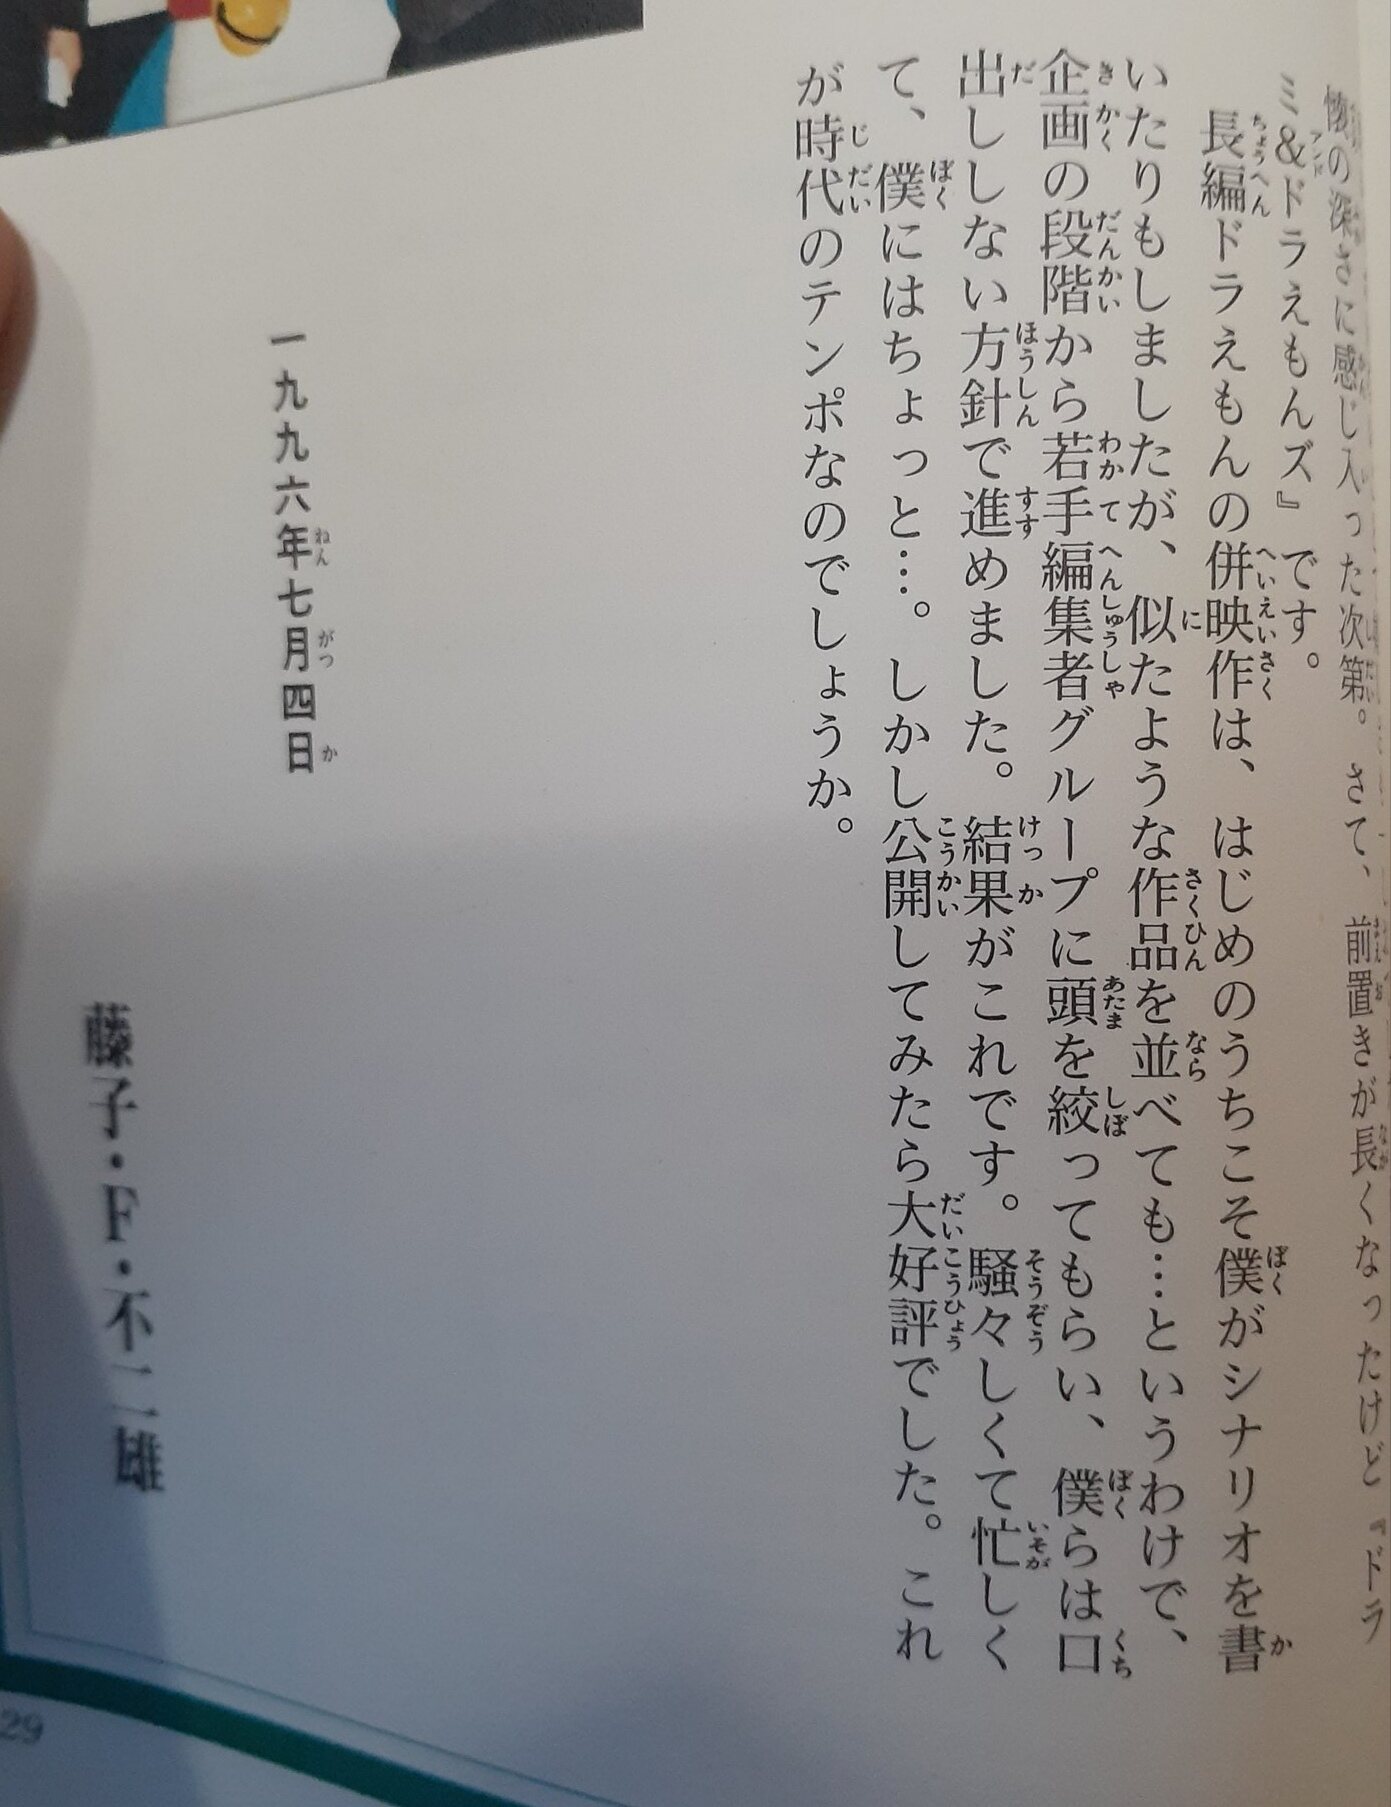 懐の深さに感じ入った次第。さて、前置きが長くなったけど『ドラ
ミ&ドラえもんズ』です。
長編ドラえもんの併映作は、はじめのうちこそ僕がシナリオを書
いたりもしましたが、似たような作品を並べても…というわけで、
企画の段階から若手編集者グループに頭を絞ってもらい、僕らは口
出ししない方針で進めました。結果がこれです。騒々しくて忙しく
て、僕にはちょっと…。しかし公開してみたら大好評でした。これ
が時代のテンポなのでしょうか。
一九九六年七月四日
藤子・F・不二雄
29